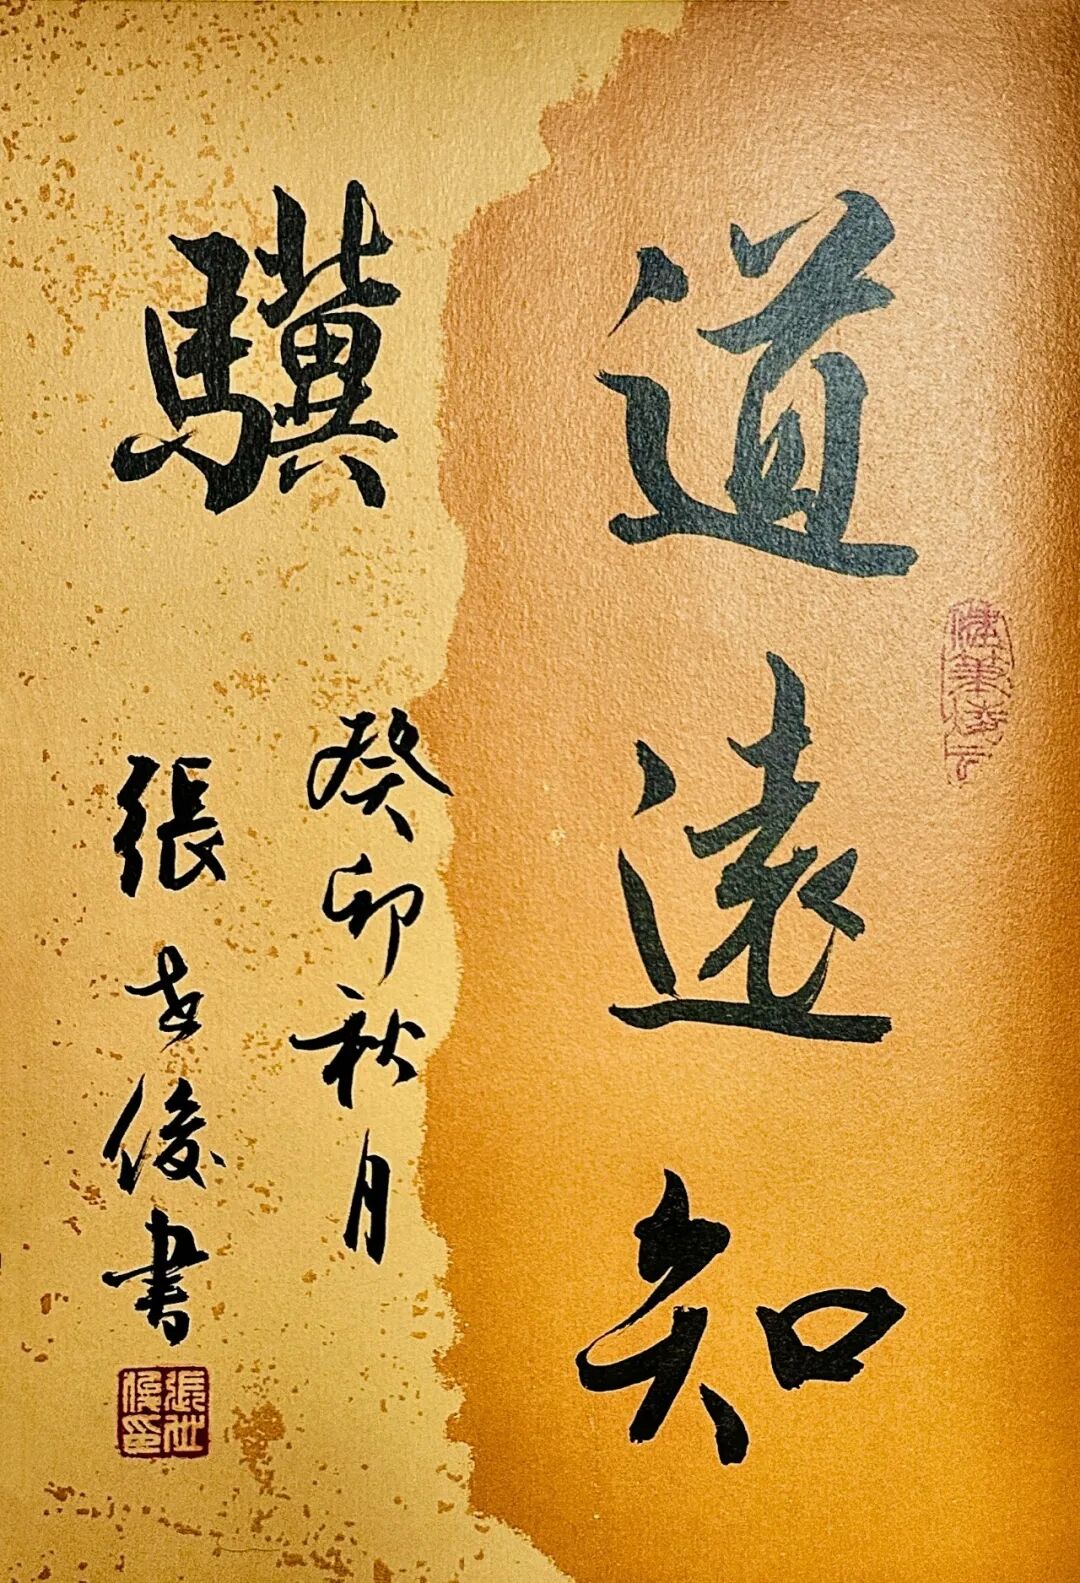 道遠知
驥
癸卯秋月
張世俊書
張世
俊印